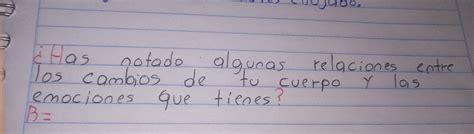 ¿Has notado algunas relaciones entre
los cambios de tu cuerpo y las
emociones que tienes?
R=